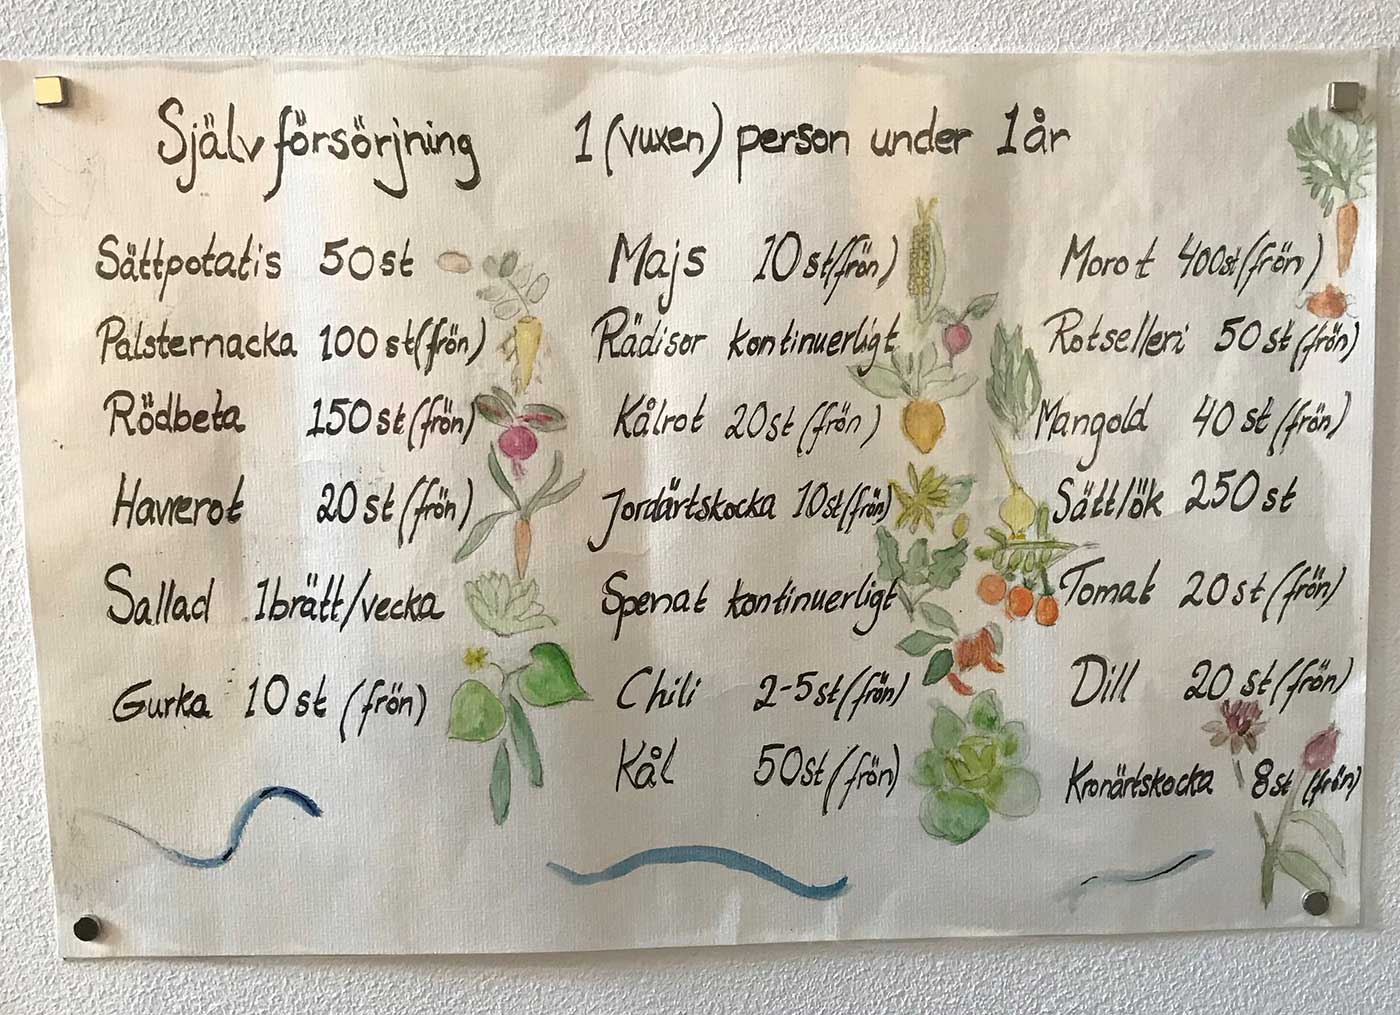 Självförsörjning 1 (vuxen) person under 1 år
Sättpotatis 50 st
Palsternacka 100 st (frön)
Rödbeta 150 st (frön)
Havrerot 20 st (frön)
Sallad 1 brätt/vecka
Gurka 10 st (frön)
Majs 10 st (frön)
Rädisor kontinuerligt
Kålrot 20 st (frön)
Jordärtskocka 10 st (frön)
Spenat kontinuerligt
Chili 2-5 st (frön)
Kål 50 st (frön)
Morot 400 st (frön)
Rotselleri 50 st (frön)
Mangold 40 st (frön)
Sättlök 250 st
Tomat 20 st (frön)
Dill 20 st (frön)
Kronärtskocka 8 st (frön)